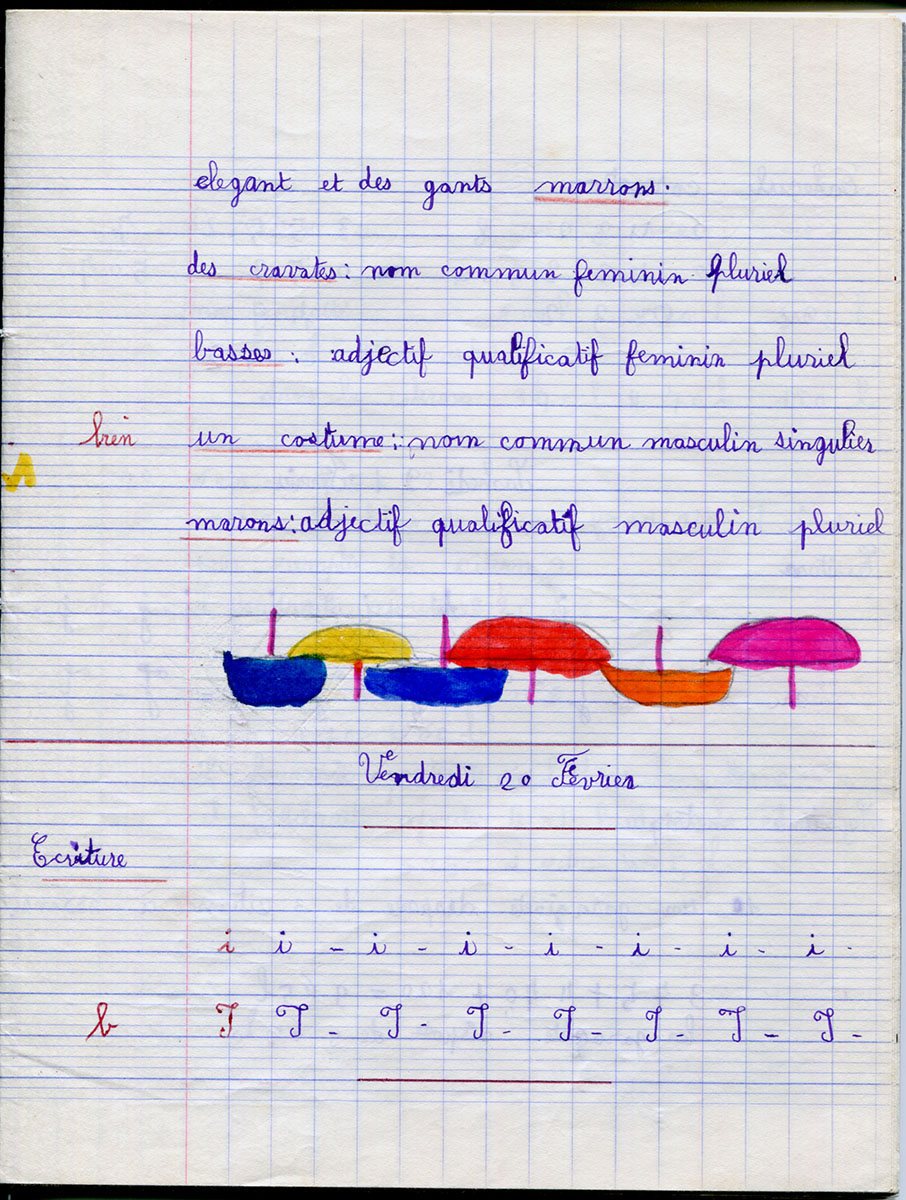 elegant et des gants marrons.
des cravates : nom commun feminin pluriel
basses : adjectif qualificatif feminin pluriel
bien un costume : nom commun masculin singulier
marons : adjectif qualificatif masculin pluriel
Vendredi 20 Février
Ecriture
i i - i - i - i - i - i - i -
b I I - I - I - I - I - I - I -